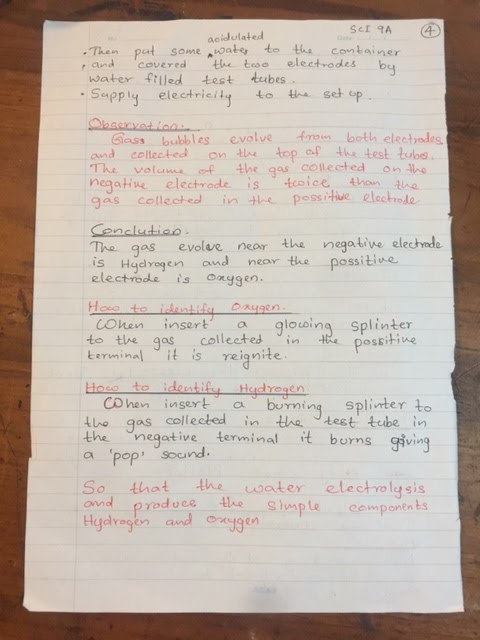 SCI 9A 4
acidulated
• Then put some water to the container
, and covered the two electrodes by
water filled test tubes.
• Supply electricity to the set up.
Observation.
Gass bubbles evolve from both electrodes
and collected on the top of the test tubes.
The volume of the gas collected on the
negative electrode is twice than the
gas collected in the possitive electrode
Conclution.
The gas evolove near the negative electrode
is Hydrogen and near the possitive
electrode is Oxygen.
How to identify Oxygen.
When insert a glowing splinter
to the gas collected in the possitive
terminal it is reignite.
How to identify Hydrogen
When insert a burning splinter to
the gas collected in the test tube in
the negative terminal it burns giving
a 'pop' sound.
So that the water electrolysis
and produce the simple components
Hydrogen and Oxygen